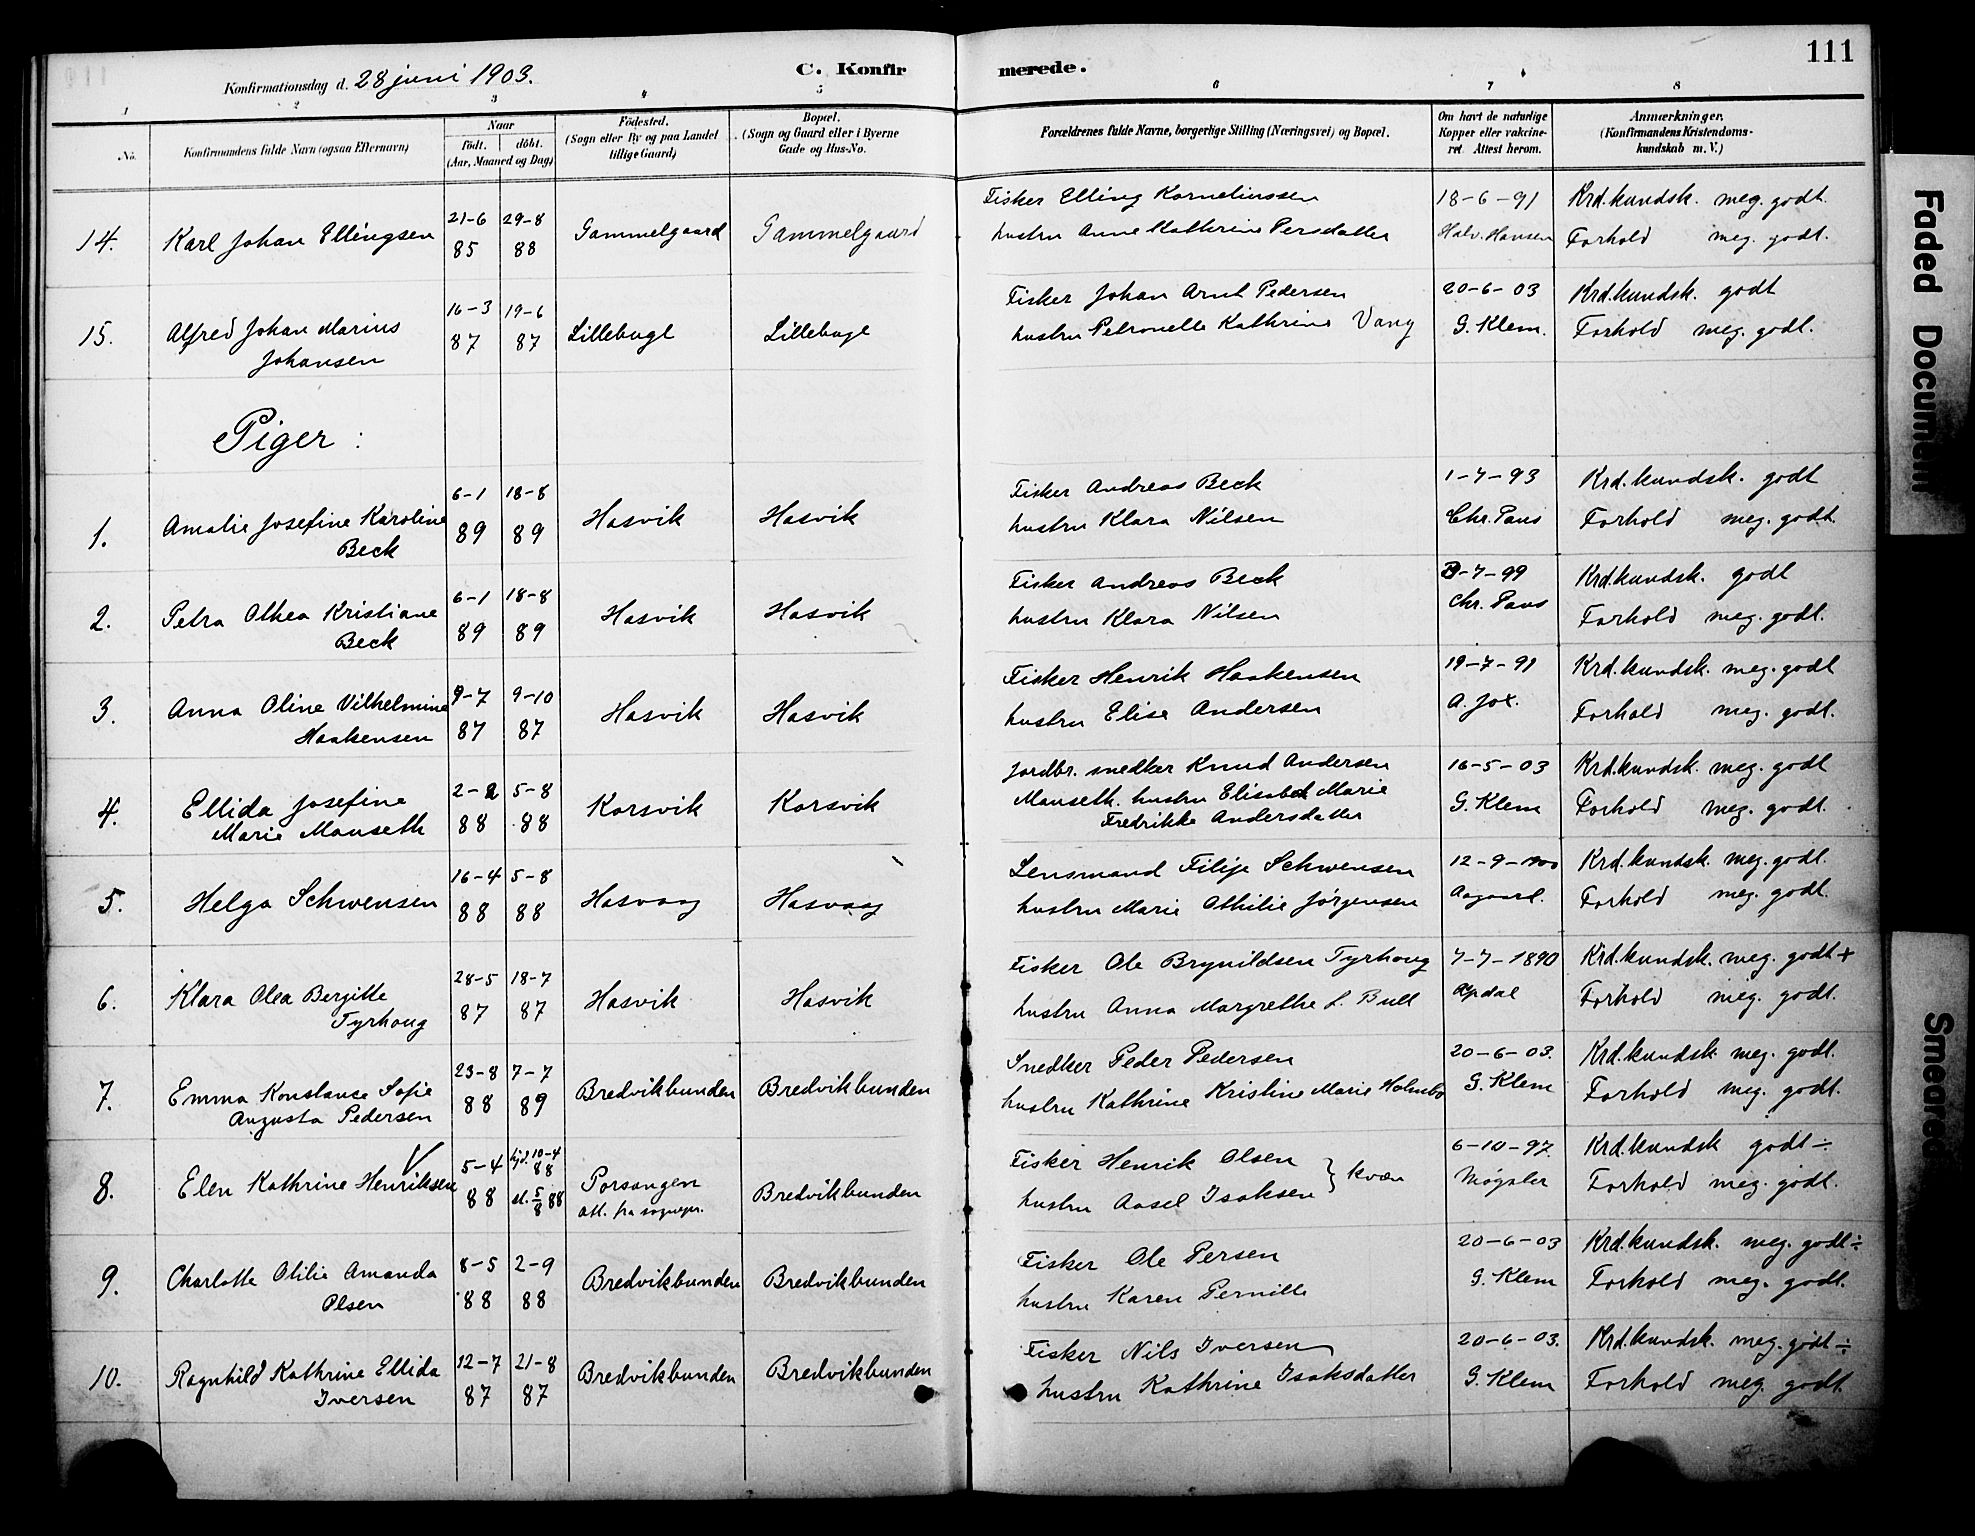 111
Konfirmationsdag d. 28 juni 1903.
C. Konfirmerede.
1 2 3 4 5 6 7 8
No. Konfirmandens fulde Navn (ogsaa Efternavn) Naar født. døbt. (Aar, Maaned og Dag) Fødested. (Sogn eller By og paa Landet tillige Gaard) Bopæl. (Sogn og Gaard eller i Byerne Gade og Hus-No. Forældrenes fulde Navne, borgerlige Stilling (Næringsvei) og Bopæl. Om havt de naturlige Kopper eller vaccineret. Attest herom. Anmærkninger. (Konfirmandens Kristendomskundskab m. V.)
14. Karl Johan Ellingsen 21-6 85 29-8 88 Gammelgaard Gammelgaard Fisker Elling Korneliussen 18-6-91 Krd.kundsk. meg. godt.
hustru Anne Kathrine Persdatter Halv. Hansen Forhold meg. godt.
15. Alfred Johan Marius 16-3 87 19-6 87 Lillebugt Lillebugt Fisker Johan Arnt Pedersen 20-6-03 Krd.kundsk. godt
Johansen hustru Petronelle Kathrine Vang G. Klem. Forhold meg. godt.
Piger:
1. Amalie Josefine Karoline 6-1 89 18-8 89 Hasvik Hasvik Fisker Andreas Beck 1-7-93 Krd.kundsk. godt
Beck hustru Klara Nilsen Chr. Paus Forhold meg. godt.
2. Petra Othea Kristiane 6-1 89 18-8 89 Hasvik Hasvik Fisker Andreas Beck -7-99 Krd.kundsk. godt
Beck hustru Klara Nilsen Chr. Paus Forhold meg. godt.
3. Anna Oline Vilhelmine 9-7 87 9-10 87 Hasvik Hasvik Fisker Henrik Haakensen 19-7-91 Krd.kundsk. meg. godt
Haakensen hustru Elise Andersen A. Fox. Forhold meg. godt.
4. Ellida Josefine 2-2 88 5-8 88 Korsvik Korsvik Jordbr. snedker Knud Andersen 16-5-03 Krd.kundsk. meg. godt
Marie Mauseth Mauseth. hustru Elisabet Marie G. Klem Forhold meg. godt.
Fredrikke Andersdatter
5. Helga Schwensen 16-4 88 5-8 88 Hasvaag Hasvaag Lensmand Filip Schwensen 12-9-1900 Krd.kundsk. meg. godt.
hustru Marie Othilie Jørgensen Aagaard. Forhold meg. godt.
6. Klara Olea Bergitte 28-5 87 18-7 87 Hasvik Hasvik Fisker Ole Brynildsen Tyrhoug 7-7-1890 Krd.kundsk. meg. godt+
Tyrhoug hustru Anna Margrethe L. Bull Opdal Forhold meg. godt.
7. Emma Konstanse Sofie 23-8 88 7-7 89 Bredvikbunden Bredvikbunden Snedker Peder Pedersen 20-6-03. Krd.kundsk. meg. godt.
Augusta Pedersen hustru Kathrine Kristine Marie Holmbo G. Klem Forhold meg. godt.
8. Elen Kathrine Henriksen 5-4 88 hjd. 10-4 88 st. 5/8 88 Porsangen Bredvikbunden Fisker Henrik Olsen } kvæn 6-10-97. Krd.kundsk godt÷
att. fra sognepr. hustru Aasel Isaksen Møgster Forhold meg. godt.
9. Charlotte Otilie Amanda 8-5 88 2-9 88 Bredvikbunden Bredvikbunden Fisker Ole Persen 20-6-03 Krd.kundsk. meg. godt÷
Olsen hustru Karen Pernille G. Klem Forhold meg. godt.
10. Ragnhild Kathrine Ellida 12-7 87 21-8 87 Bredvikbunden Bredvikbunden Fisker Nils Iversen 20-6-03. Krd.kundsk. meg. godt÷
Iversen hustru Kathrine Isaksdatter G. Klem Forhold meg. godt.
Faded Document
Smeared